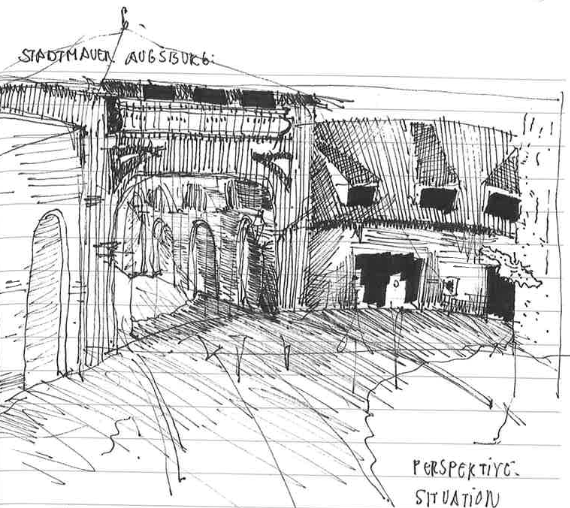 STADTMAUER AUGSBURG:
PERSPEKTIVE-
SITUATION